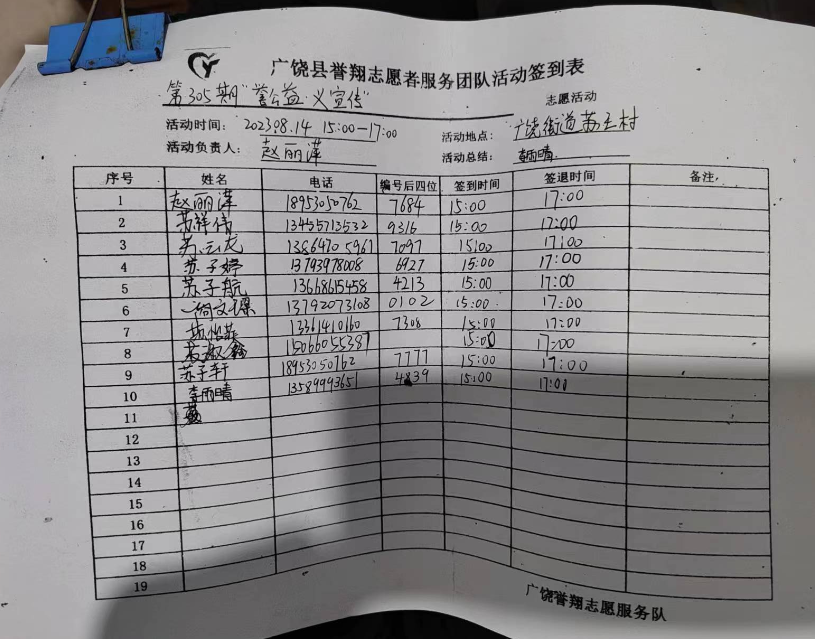 广饶县誉翔志愿者服务团队活动签到表
第305期"誉公益·义宣传" 志愿活动
活动时间： 2023.8.14 15:00-17:00 活动地点： 广饶街道苏王村
活动负责人： 赵丽萍 活动总结： 李雨晴
序号 姓名 电话 编号后四位 签到时间 签退时间 备注
1 赵丽萍 18953050762 7684 15:00 17:00
2 苏祥伟 13455713532 9316 15:00 17:00
3 苏云龙 13864705961 7097 15:00 17:00
4 苏子婷 13793978008 6927 15:00 17:00
5 苏子航 13668615458 4213 15:00 17:00
6 13792073108 0102 15:00 17:00
7 13361410160 7308 15:00 17:00
8 15066055387 15:00 17:00
9 苏子轩 18953050762 7777 15:00 17:00
10 李雨晴 13589993651 4839 15:00 17:00
11
12
13
14
15
16
17
18
19
广饶誉翔志愿服务队